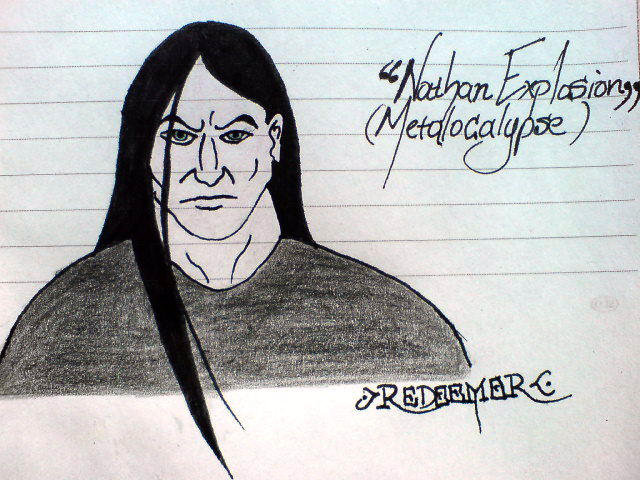 “Nathan Explosion„
(Metalocalypse)
REDEEMER